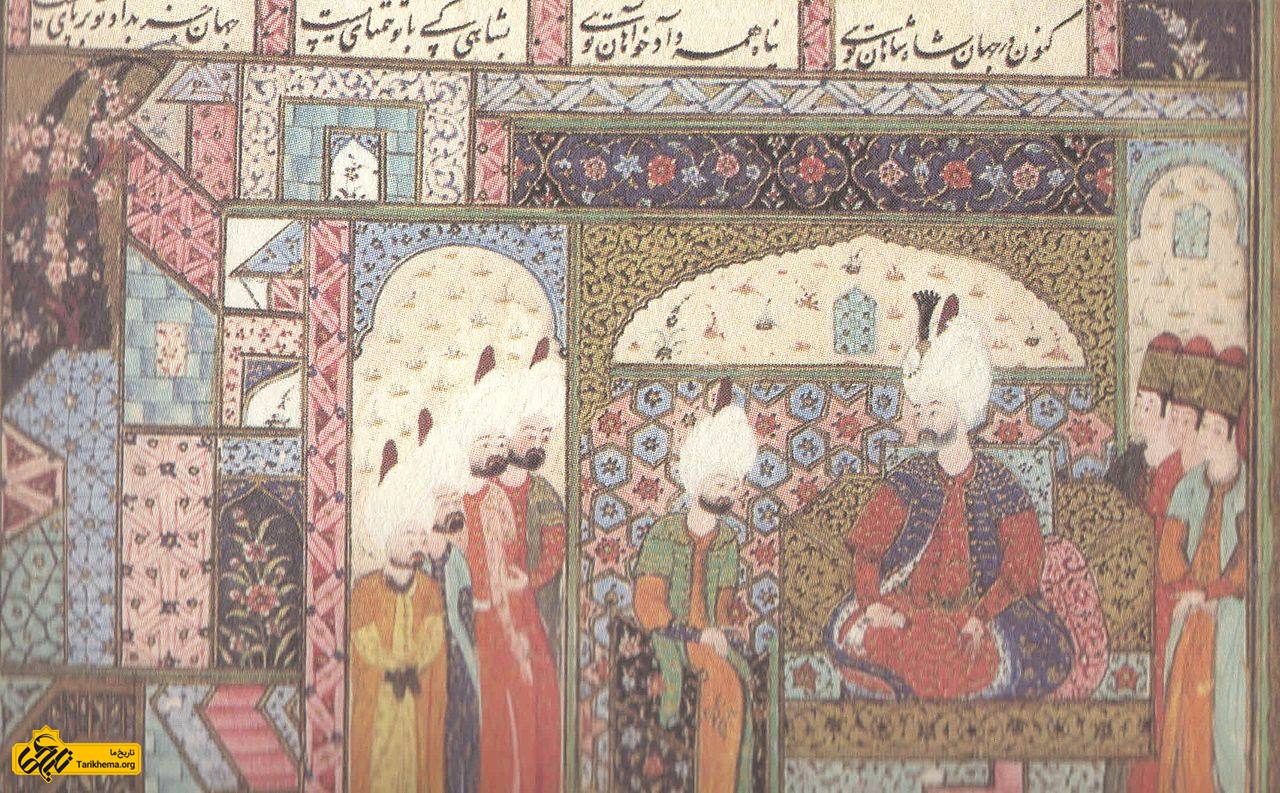 کنون در جهان شاه شاهان توی
پناه همه دادخواهان توی
بشاهی کسی با تو همتای نیست
جهان جز بداد تو بر پای نیست
تاریخ‌ما
Tarikhema.org